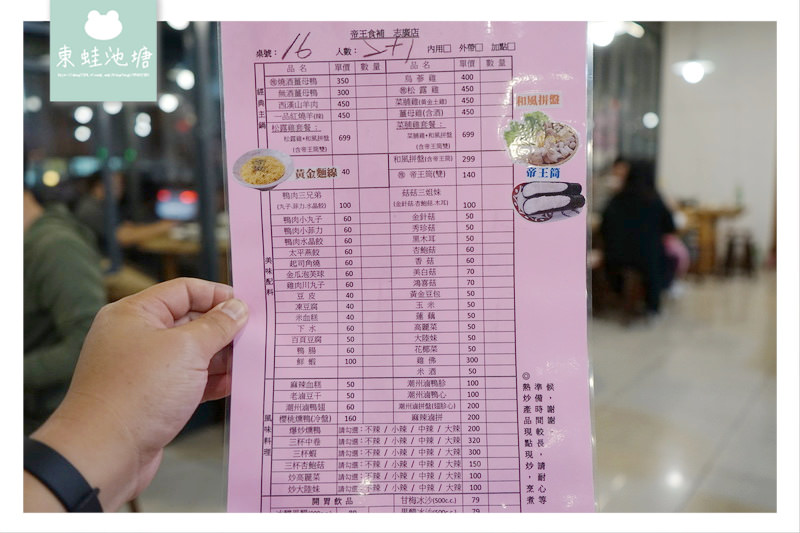 東蛙池塘
帝王食補 志廣店
桌號: 16 人數: 2+1 內用□ 外帶□ 加點□
品名 單價 數量 品名 單價 數量
經典主鍋
㊕燒酒薑母鴨 350 烏蔘雞 400
無酒薑母鴨 300 ㊕松露雞 450
西漢山羊肉 450 菜脯雞(黃金土雞) 450
一品紅燒羊(辣) 450 薑母雞(含酒) 450
松露雞套餐: 菜脯雞套餐:
松露雞+和風拼盤 699 菜脯雞+和風拼盤 699
(含帝王筒雙) (含帝王筒雙)
和風拼盤(含帝王筒) 299
黃金麵線 40 ㊕ 帝王筒(雙) 140
和風拼盤
帝王筒
美味配料
鴨肉三兄弟 菇菇三姐妹
(丸子.菲力.水晶餃) 100 (金針菇.杏鮑菇.木耳) 100
鴨肉小丸子 60 金針菇 50
鴨肉小菲力 60 秀珍菇 50
鴨肉水晶餃 60 黑木耳 50
太平燕餃 60 杏鮑菇 60
起司角燒 60 香菇 60
金瓜泡芙球 60 美白菇 70
雞肉川丸子 60 鴻喜菇 70
豆皮 40 黃金豆包 50
凍豆腐 40 玉米 50
米血糕 40 蓮藕 50
下水 60 高麗菜 50
百頁豆腐 50 大陸妹 50
鴨腸 60 花椰菜 50
鮮蝦 100 雞佛 300
米酒 50
風味料理
麻辣血糕 50 潮州滷鴨胗 100
老滷豆干 50 潮州滷鴨心 100
潮州滷鴨翅 60 潮州滷拼盤(翅胗心) 200
櫻桃燻鴨(冷盤) 160 麻辣滷拼 200
爆炒燻鴨 請勾選:不辣 / 小辣 / 中辣 / 大辣 200
三杯中卷 請勾選:不辣 / 小辣 / 中辣 / 大辣 320
三杯蝦 請勾選:不辣 / 小辣 / 中辣 / 大辣 300
三杯杏鮑菇 請勾選:不辣 / 小辣 / 中辣 / 大辣 150
炒高麗菜 請勾選:不辣 / 小辣 / 中辣 / 大辣 100
炒大陸妹 請勾選:不辣 / 小辣 / 中辣 / 大辣 100
開胃飲品 甘梅冰沙(500c.c.) 79
◎熱炒產品現點現炒,烹煮
準備時間較長,請耐心等
候,謝謝